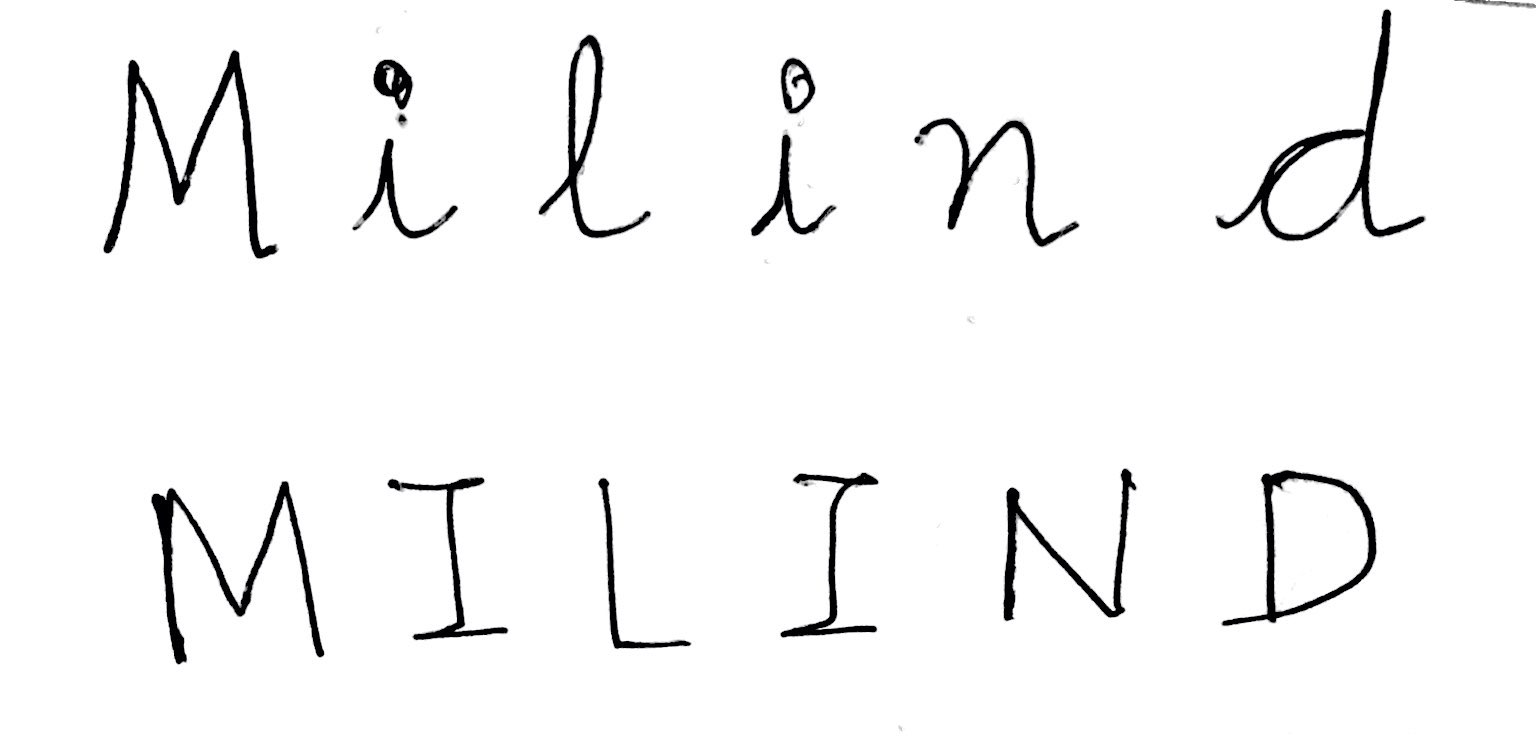 M i l i n d
M I L I N D